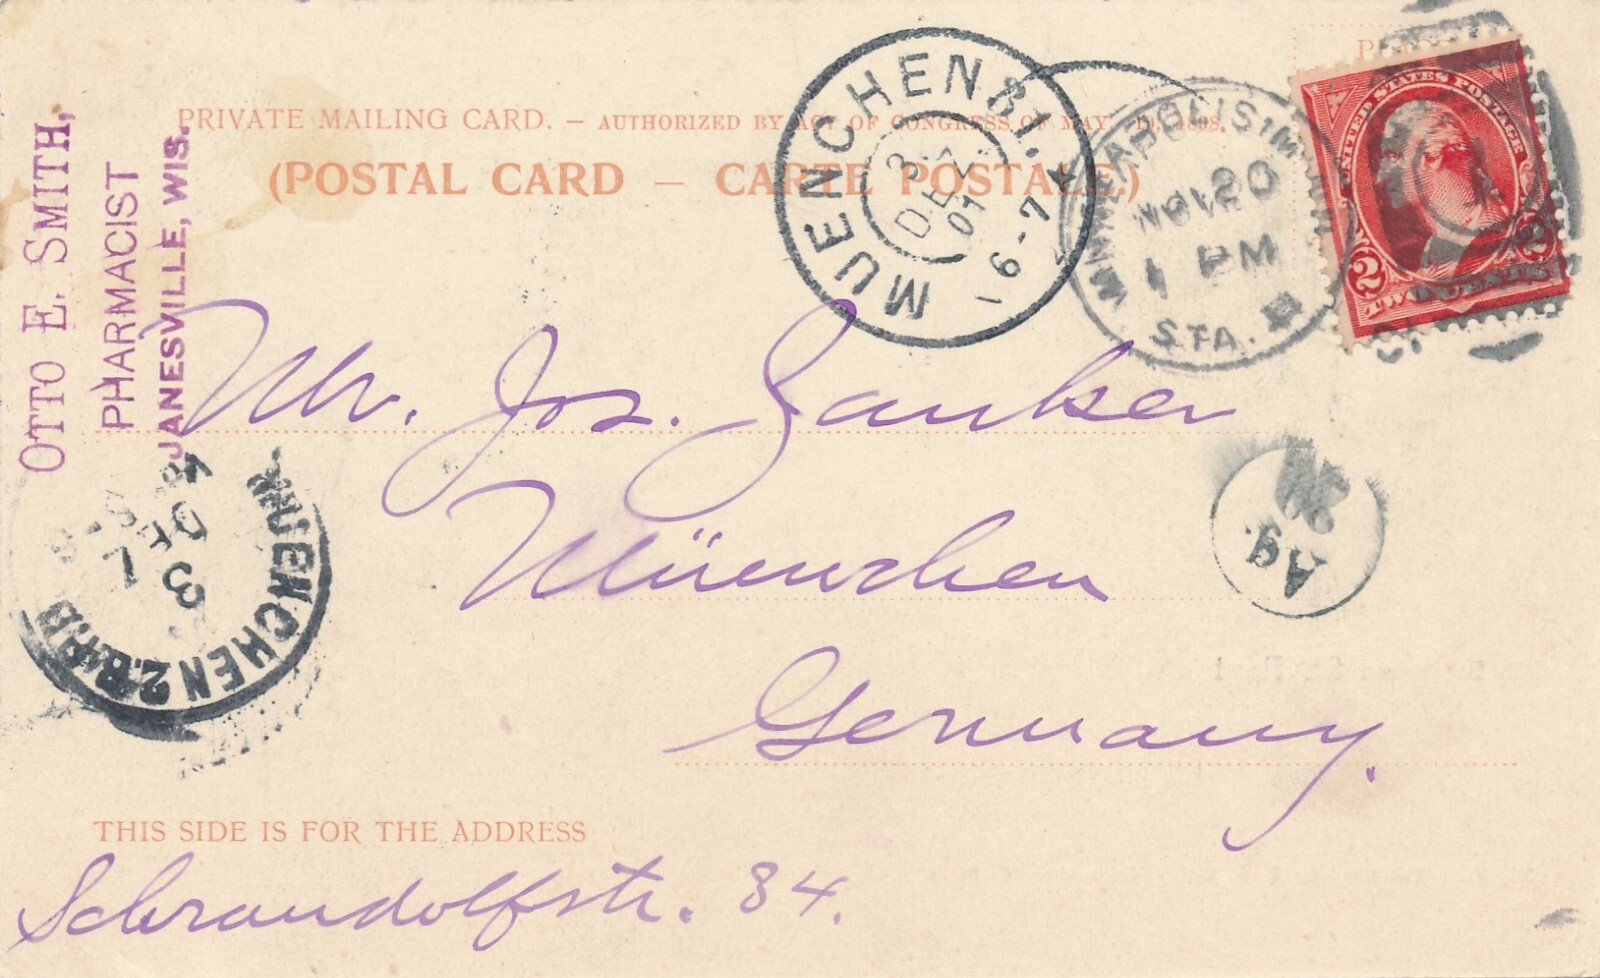 PRIVATE MAILING CARD. – AUTHORIZED BY ACT OF CONGRESS OF MAY 19, 1898.
(POSTAL CARD – CARTE POSTALE.)
OTTO E. SMITH,
PHARMACIST
JANESVILLE, WIS.
MUENCHEN
3
DEZ
01
6-7
MINNEAPOLIS
NOV 20
1 PM
STA.
UNITED STATES POSTAGE
2 2
TWO CENTS
Mr. Jos.
Müenchen
Germany.
MUENCHEN 2
3
DEZ
Ag.
THIS SIDE IS FOR THE ADDRESS
Schraudolfstr. 34.